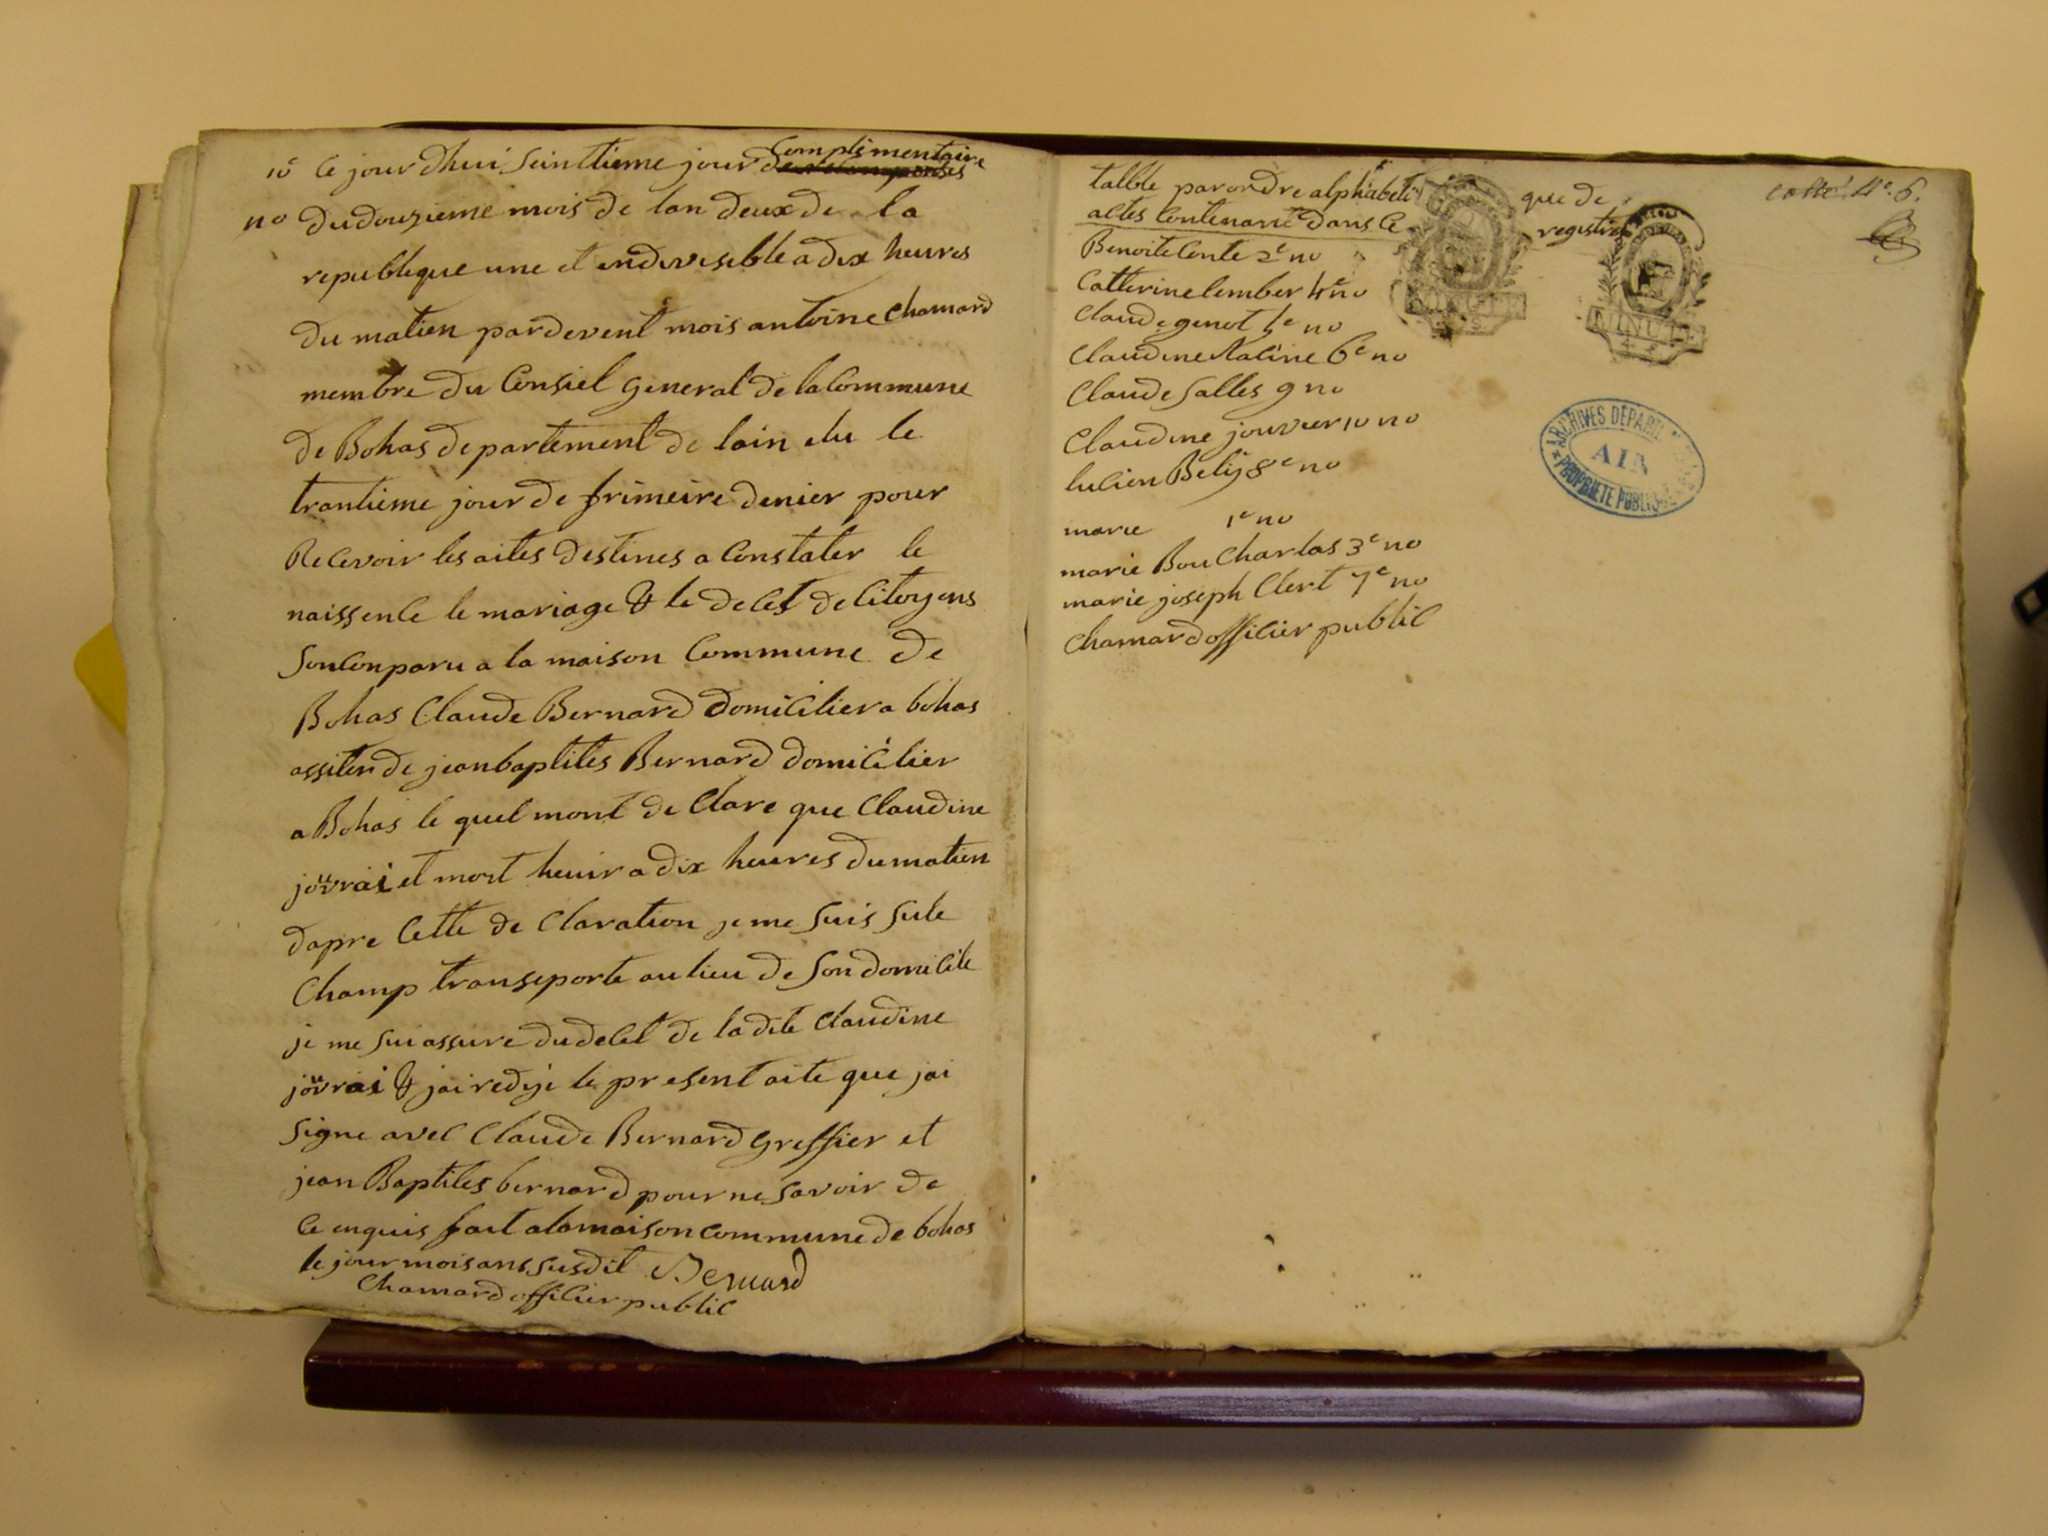 10e Ce jour dhui Seinttieme jour Complimentaire
no du douzieme mois de lan deux de la
republique une et endivisible a dix heures
du matien pardevent mois antoine Chamard
membre du Consiel general de la Commune
de Bohas departement de lain elu le
trantieme jour de frimeire denier pour
Recevoir les aites destines a Constater le
naissence le mariage & le decet de Citoyens
Son Conparu a la maison Commune de
Bohas Claude Bernard domicilier a bohas
assiter de jean baptites Bernard domicilier
a Bohas le quel mont de Clare que Claudine
jouvrai et mort heuir a dix heures du matien
dapre Cette de Claration je me Suis Sule
Champ transeporte au lieu de Son domicile
je me Sui assure du decet de la dite Claudine
jouvrai & jai redije le present aite que jai
Signe avec Claude Bernard greffier et
jean Baptites bernard pour ne Savoir de
Ce enquis fait a la maison commune de bohas
le jour mois ans susdit Bernard
Chamard officier public
talble par ordre alphabeti que de
actes Contenant dans Ce registre
Benoite Conte 2e no
Catterine lember 4e no
Claude genot 5e no
Claudine 6e no
Claude Salles 9 no
Claudine jouvrer 10 no
lucien Belij 8e no
marie 1e no
marie Bou Charlas 3e no
marie joseph Clert 7e no
Chamard officier public
MINUTE
ARCHIVES DÉPART
AIN
PROPRIÉTÉ PUBLIQUE